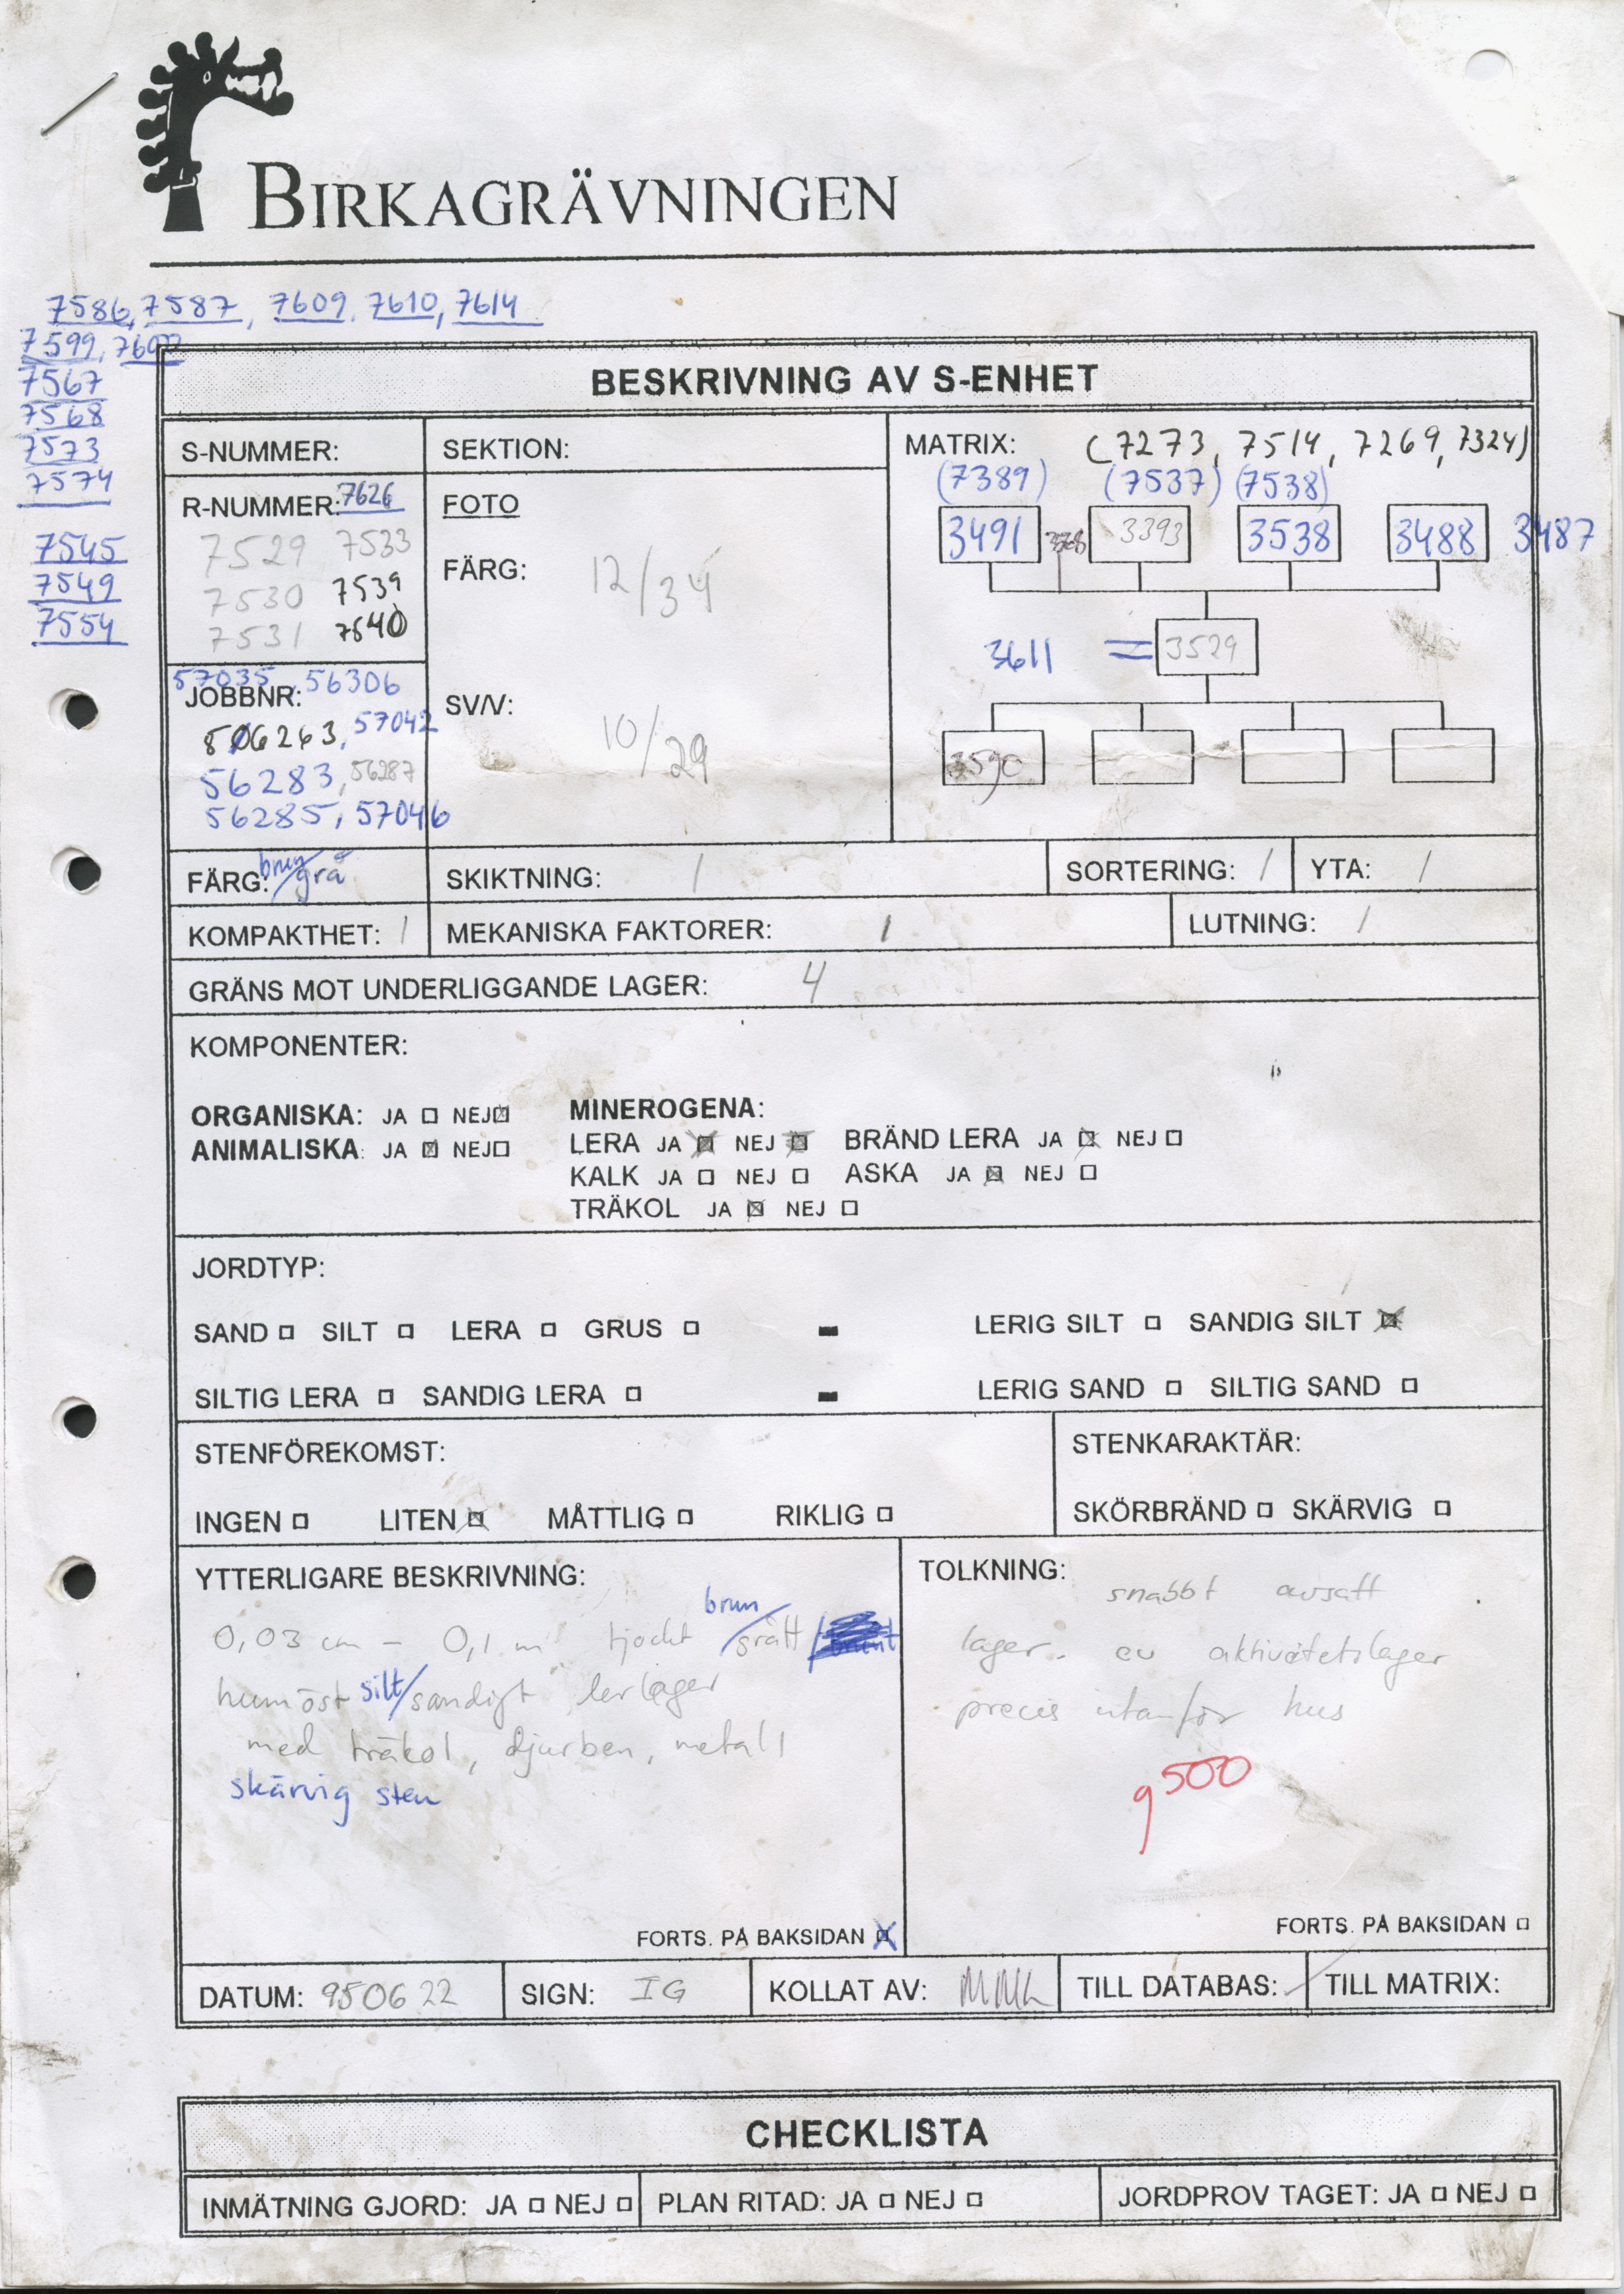 BIRKAGRÄVNINGEN
7586, 7587, 7609, 7610, 7614
7599, 7602
7567
7568
7573
7574
7545
7549
7554
BESKRIVNING AV S-ENHET
S-NUMMER:
R-NUMMER: 7626
7529 7533
7530 7539
7531 7540
JOBBNR:
57035, 56306
806263, 57042
56283, 56287
56285, 57046
SEKTION:
FOTO
FÄRG: 12/34
SV/V: 10/29
MATRIX: (7273, 7514, 7269, 7324)
(7389) (7537) (7538)
3491 3393 3538 3488 3487
3611 = 3529
3590
FÄRG: brun/grå SKIKTNING: / SORTERING: / YTA: /
KOMPAKTHET: / MEKANISKA FAKTORER: / LUTNING: /
GRÄNS MOT UNDERLIGGANDE LAGER: 4
KOMPONENTER:
ORGANISKA: JA NEJ MINEROGENA:
ANIMALISKA: JA NEJ LERA JA NEJ BRÄND LERA JA NEJ
KALK JA NEJ ASKA JA NEJ
TRÄKOL JA NEJ
JORDTYP:
SAND SILT LERA GRUS - LERIG SILT SANDIG SILT
SILTIG LERA SANDIG LERA - LERIG SAND SILTIG SAND
STENFÖREKOMST:
INGEN LITEN MÅTTLIG RIKLIG
STENKARAKTÄR:
SKÖRBRÄND SKÄRVIG
YTTERLIGARE BESKRIVNING:
0,03 cm - 0,1 m tjockt brun/grått/
humöst silt/sandigt lerlager
med träkol, djurben, metall
skärvig sten
FORTS. PÅ BAKSIDAN
TOLKNING:
snabbt avsatt
lager. ev aktivitetslager
precis utanför hus
g500
FORTS. PÅ BAKSIDAN
DATUM: 950622 SIGN: IG KOLLAT AV: TILL DATABAS: TILL MATRIX:
CHECKLISTA
INMÄTNING GJORD: JA NEJ PLAN RITAD: JA NEJ JORDPROV TAGET: JA NEJ